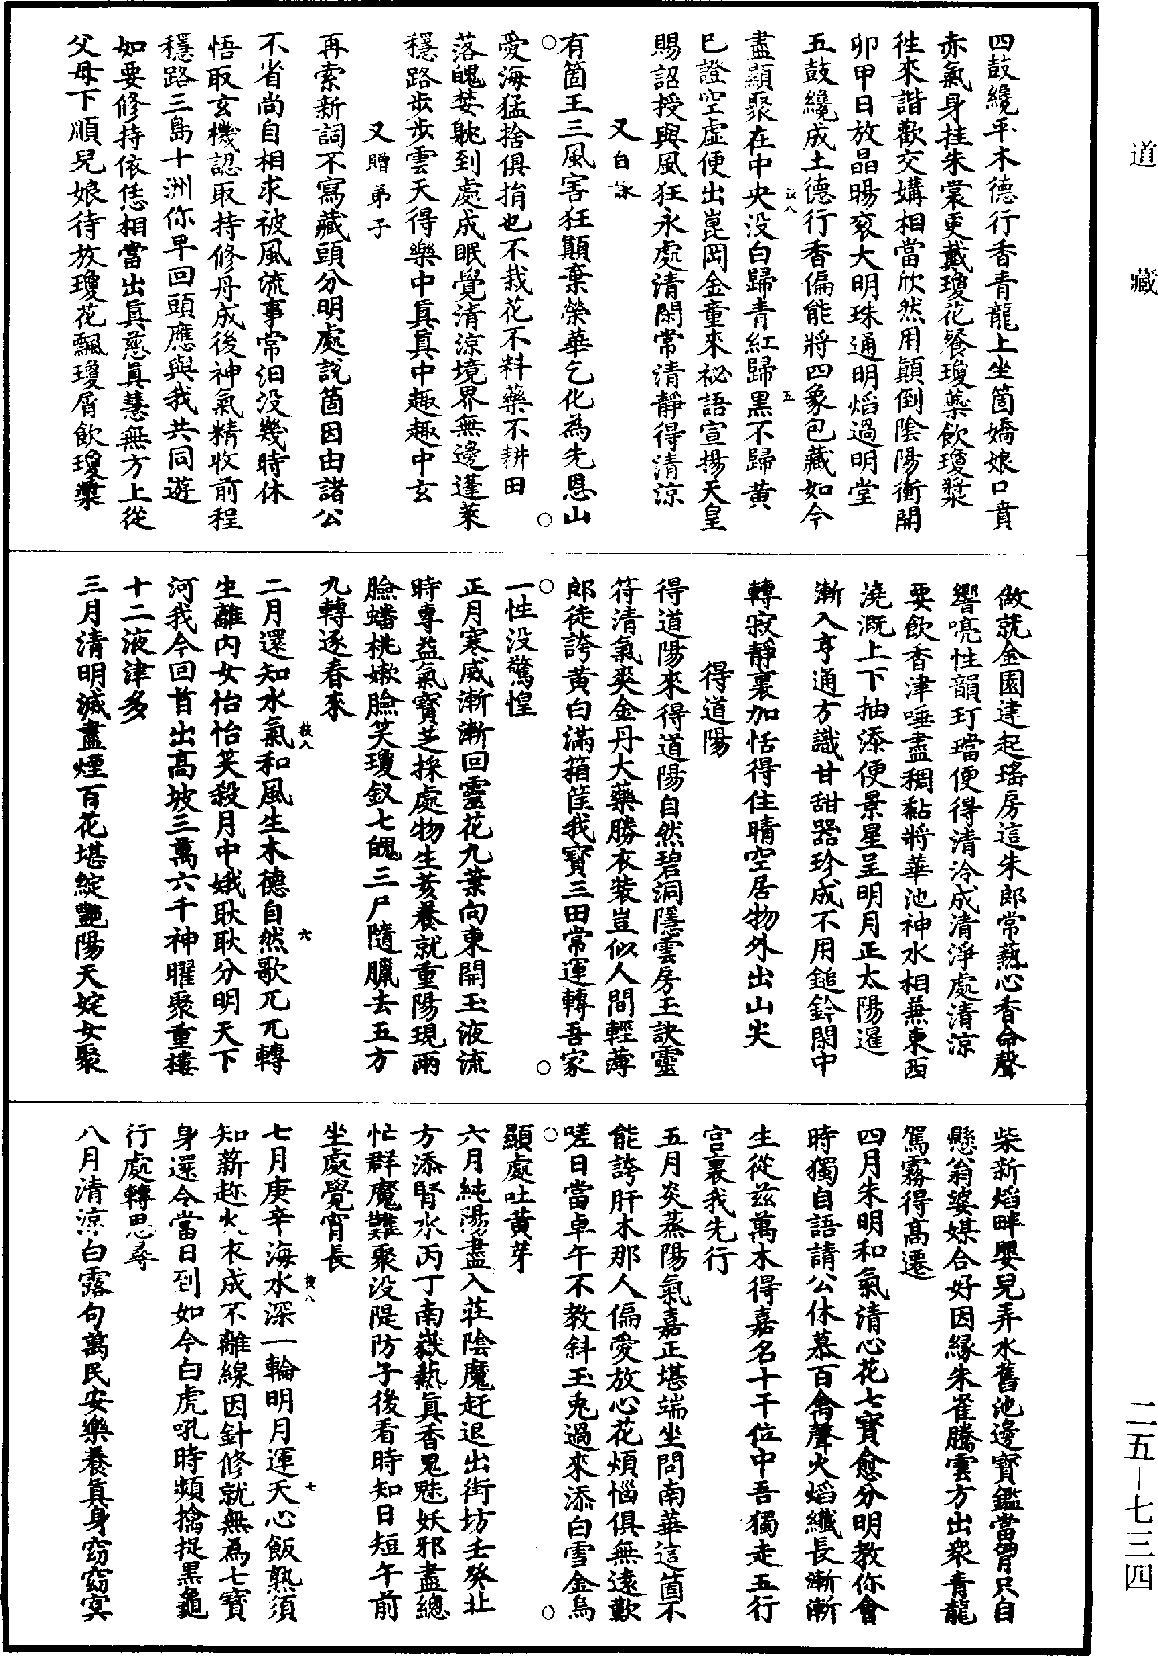 道藏
四鼓纔平木德行香青龍上坐箇嬌娘口賁
赤氣身挂朱裳更戴瓊花餐瓊蘂飲瓊漿
徃來諧歡交媾相當欣然用顚倒陰陽衝開
卯甲日放晶暘衮大明珠通明焰過明堂
五鼓纔成土德行香偏能將四象包藏如今
盡顯聚在中央没白歸青紅歸黑不歸黃
巳證空虛便出崑岡金童來祕語宣揚天皇
賜詔授與風狂永處清閑常清靜得清涼
又自詠
有箇王三風害狂顚棄榮華乞化為先恩山
愛海猛捨俱捐也不栽花不料藥不耕田
落魄婪躭到處成眠覺清涼境界無邊蓬萊
穩路步步雲天得樂中眞眞中趣趣中玄
又贈弟子
再索新詞不寫藏頭分明處說箇因由諸公
不省尚自相求被風流事常汩没幾時休
悟取玄機認取持修丹成後神氣精收前程
穩路三島十洲你早回頭應與我共同遊
如要修持依恁相當出眞慈眞慧無方上從
父母下順兒娘待放瓊花飄瓊屑飲瓊漿
做就金園建起瑤房這朱郎常爇心香命聲
響喨性韻玎璫便得清泠成清淨處清涼
要飲香津唾盡稠黏將華池神水相兼東西
澆溉上下抽添便景星呈明月正太陽暹
漸入亨通方識甘甜器珍成不用鎚鈐閑中
轉寂靜裏加恬得住晴空居物外出山尖
得道陽
得道陽來得道陽自然碧洞隱雲房玉訣靈
符清氣爽金丹大藥勝衣裝豈似人間輕薄
郎徒誇黃白滿箱筐我寳三田常運轉吾家
一性没驚惶
正月寒威漸漸回靈花九葉向東開玉液流
時專益氣寳芝採處物生荄養就重陽現兩
臉蟠桃嫰臉笑瓊釵七魄三尸隨臘去五方
九轉逐春來
二月還知水氣和風生木德自然歌兀兀轉
生離内女怡怡笑殺月中娥耿耿分明天下
河我今回首出高坡三萬六千神曜聚重樓
十二液津多
三月清明減盡煙百花堪綻艷陽天姹女聚
柴新焰畔嬰兒弄水舊池邊寳鑑當胷只自
懸翁婆媒合好因緣朱雀騰雲方出衆青龍
駕霧得高遷
四月朱明和氣清心花七寳愈分明教你會
時獨自語請公休慕百禽聲火焰纖長漸漸
生從玆萬木得嘉名十干位中吾獨走五行
宫裏我先行
五月炎蒸陽氣嘉正堪端坐問南華這箇不
能誇肝木那人偏愛放心花煩惱俱無遠歎
嗟日當卓午不教斜玉兎過來添白雪金烏
顯處吐黃芽
六月純陽盡入莊陰魔赶退出街坊壬癸北
方添腎水丙丁南嶽爇眞香鬼魅妖邪盡總
忙群魔難聚没隄防子後看時知日短午前
坐處覺宵長
七月庚辛海水深一輪明月運天心飯熟須
知薪趂火衣成不離線因針修就無為七寳
身還今當日到如今白虎吼時頻擒捉黑龜
行處轉思尋
八月清涼白露句萬民安樂養眞身窈窈㝠
二五—七三四